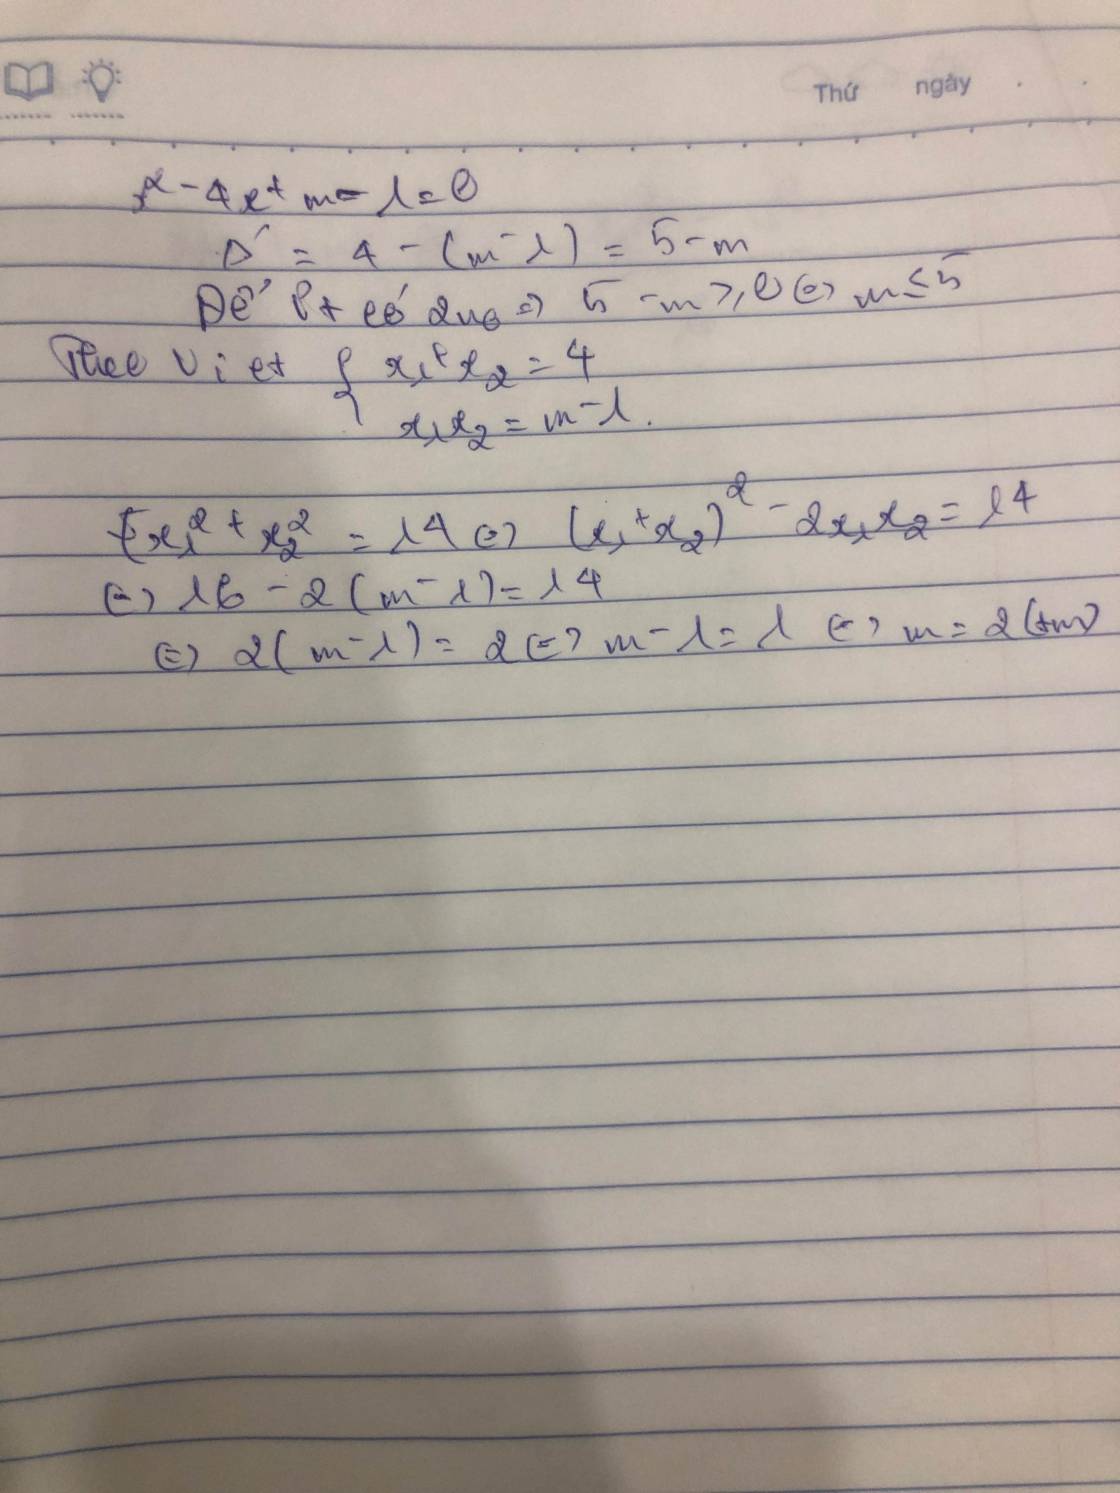 Thứ ngày
x² - 4x + m - 1 = 0
Δ' = 4 - (m - 1) = 5 - m
Để Pt có 2n₀ => 5 - m ≥ 0 <=> m ≤ 5
Theo Vi et { x₁ + x₂ = 4
x₁x₂ = m - 1.
x₁² + x₂² = 14 <=> (x₁ + x₂)² - 2x₁x₂ = 14
<=> 16 - 2(m - 1) = 14
<=> 2(m - 1) = 2 <=> m - 1 = 1 <=> m = 2 (tm)